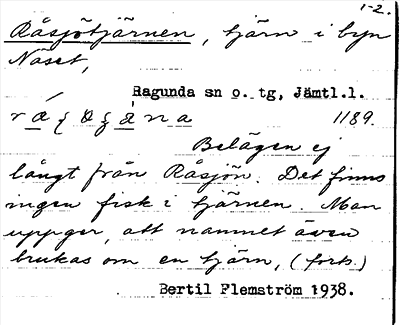 1-2.
Råsjötjärnen, tjärn i byn
Näset,
Ragunda sn o. tg, Jämtl.l.
1189.
Belägen ej
långt från Råsjön. Det finns
ingen fisk i tjärnen. Man
uppger, att namnet även
brukas om en tjärn, (forts.)
Bertil Flemström 1938.